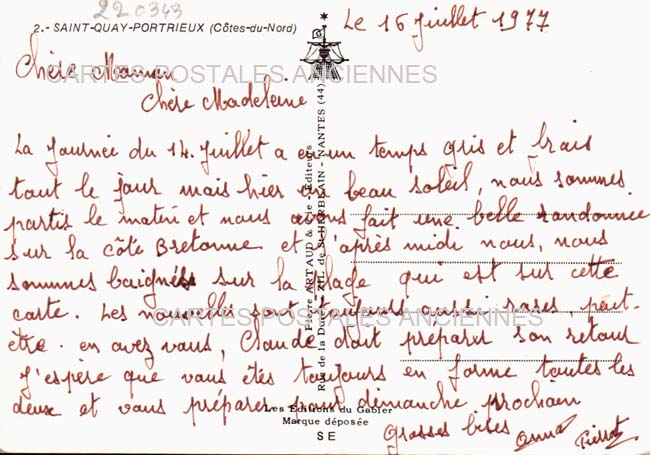 220343
2.- SAINT-QUAY-PORTRIEUX (Côtes-du-Nord)
Le 16 Juillet 1977
Chère Maman
Chère Madeleine
CARTES POSTALES ANCIENNES
La Journée du 14 Juillet a eu un temps gris et frais
tout le jour mais hier un beau soleil, nous sommes
partis le matin et nous avons fait une belle randonnée
sur la côte Bretonne et l'après midi nous, nous
sommes baignés sur la plage qui est sur cette
carte. Les nouvelles sont toujours aussi rares, peut-
CARTES POSTALES ANCIENNES
être en avez vous, Claude doit préparer son retour
J'espère que vous êtes toujours en forme toutes les
deux et vous préparer pour dimanche prochain
grosses bises Anna Pierrot
Pierre ARTAUD & Cie - Editeurs
Rue de la Dune - ZIL de St-HERBLAIN - NANTES (44)
Les Editions du Gabier
Marque déposée
SE